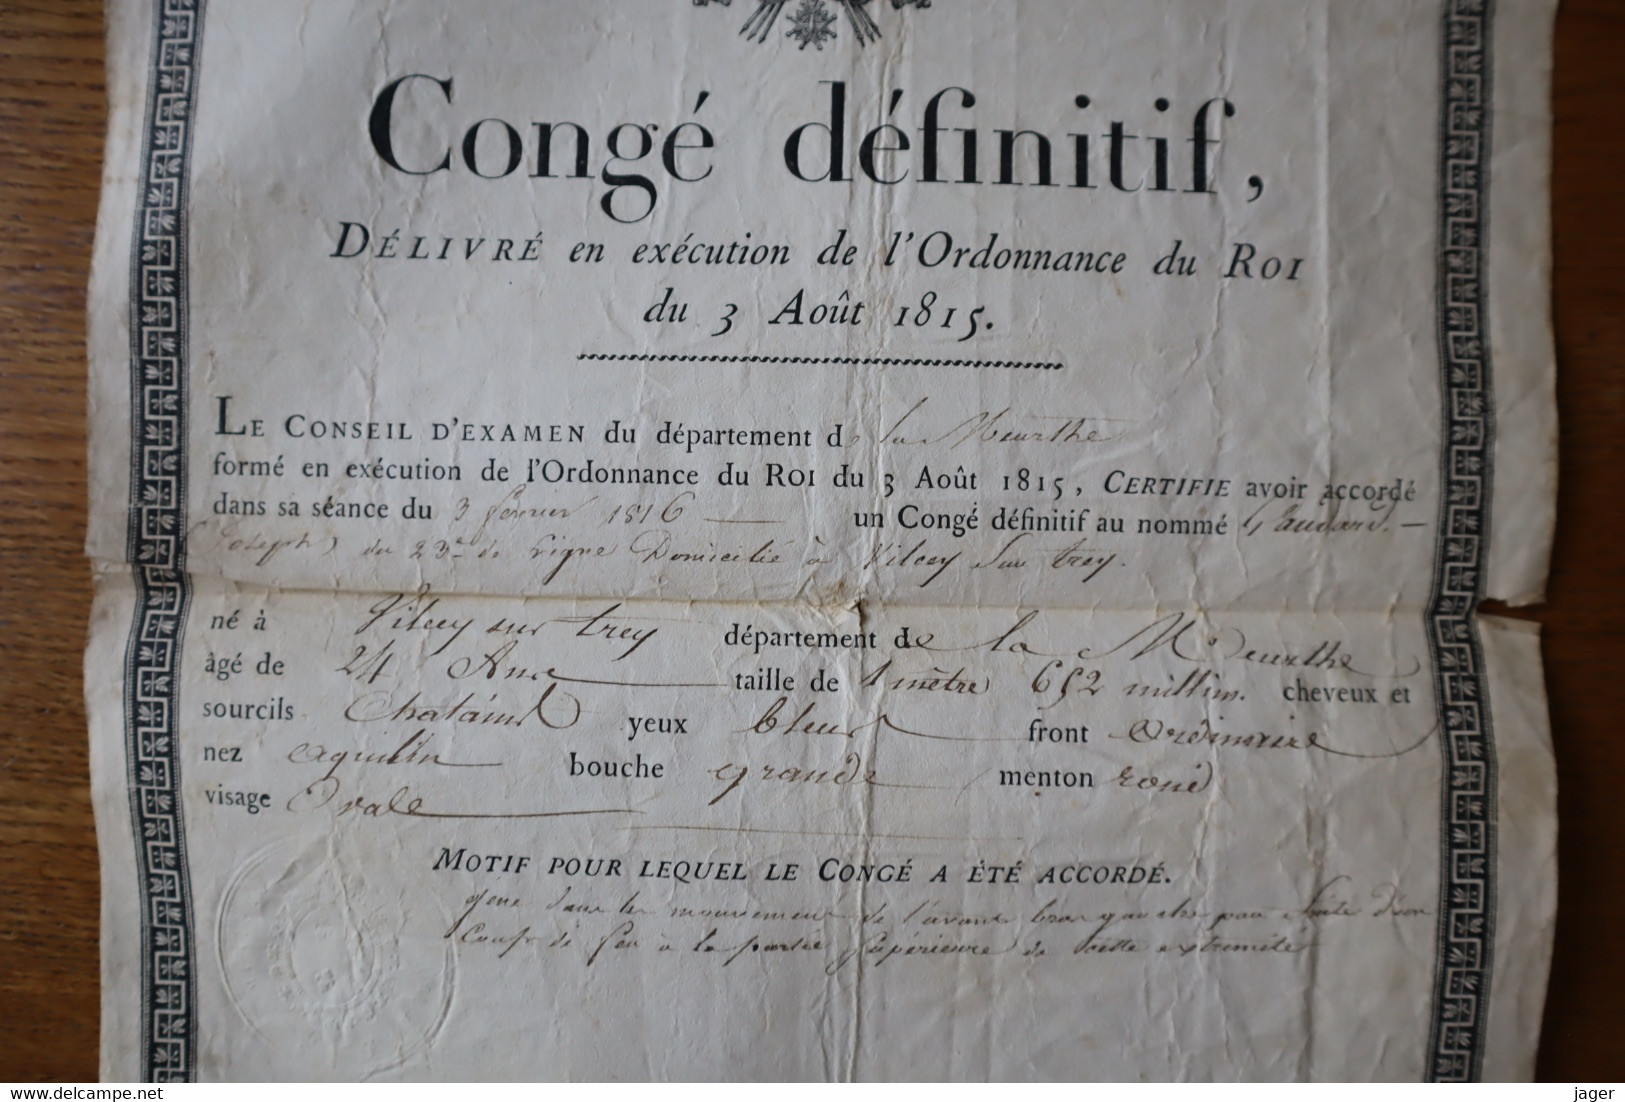 Congé définitif,
DÉLIVRÉ en exécution de l'Ordonnance du ROI
du 3 Août 1815.
LE CONSEIL D'EXAMEN du département de la Meurthe
formé en exécution de l'Ordonnance du ROI du 3 Août 1815, CERTIFIE avoir accordé
dans sa séance du 3 février 1816 — un Congé définitif au nommé
(Joseph) du 23e de ligne Domicilié à Vilcey Sur trey.
né à Vilcey sur trey département de la Meurthe
âgé de 24 Ans taille de 1 mètre 652 millim. cheveux et
sourcils Chatains yeux bleus front Ordinaire
nez aquilin bouche grande menton rond
visage Ovale
MOTIF POUR LEQUEL LE CONGÉ A ÉTÉ ACCORDÉ.
gene dans les mouvements de l'avant bras gauche par suite d'un
Coup de feu à la partie supérieure de cette extremité
delcampe.net
jager